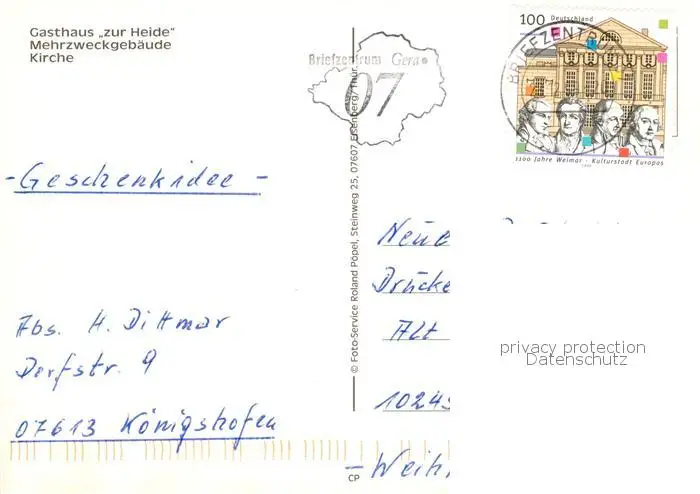 Gasthaus „zur Heide“
Mehrzweckgebäude
Kirche
- Geschenkidee -
Abs. H. Dittmar
Dorfstr. 9
07613 Königshofen
© Foto-Service Roland Popel, Steinweg 25, 07607 Eisenberg/Thür.
CP
Briefzentrum Gera
07
100 Deutschland
BRIEFZENTRUM
1100 Jahre Weimar · Kulturstadt Europas
Neue
Drucke
Alt
1024
- Weih
privacy protection
Datenschutz